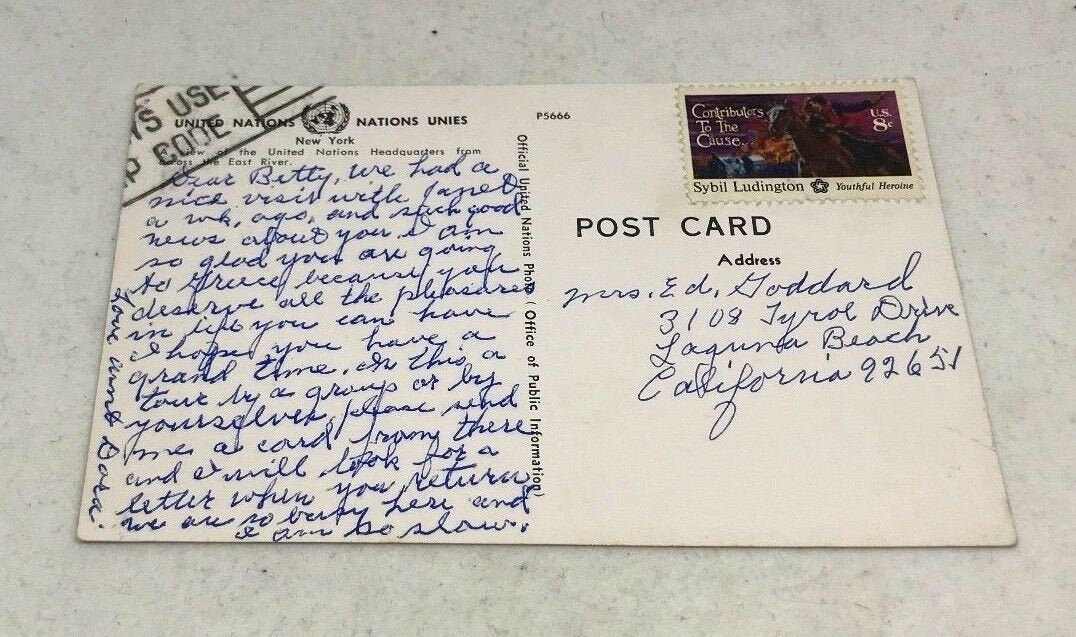 YS USE
CODE
UNITED NATIONS NATIONS UNIES
New York
of the United Nations Headquarters from
the East River.
Dear Betty, we had a
nice visit with Janet
a wk, ago, and such good
news about you I am
so glad you are going
to Greece because you
deserve all the pleasures
in life you can have
I hope you have a
grand time, Is this a
tour by a group or by
yourselves, please send
me a card from there
and I will look for a
letter when you return,
we are so busy here and
I am so slow.
Love Aunt Dora.
P5666
Official United Nations Photo (Office of Public Information)
Contributors
To The
Cause...
U.S.
8c
Sybil Ludington Youthful Heroine
POST CARD
Address
Mrs. Ed. Goddard
3108 Tyrol Drive
Laguna Beach
California 92651